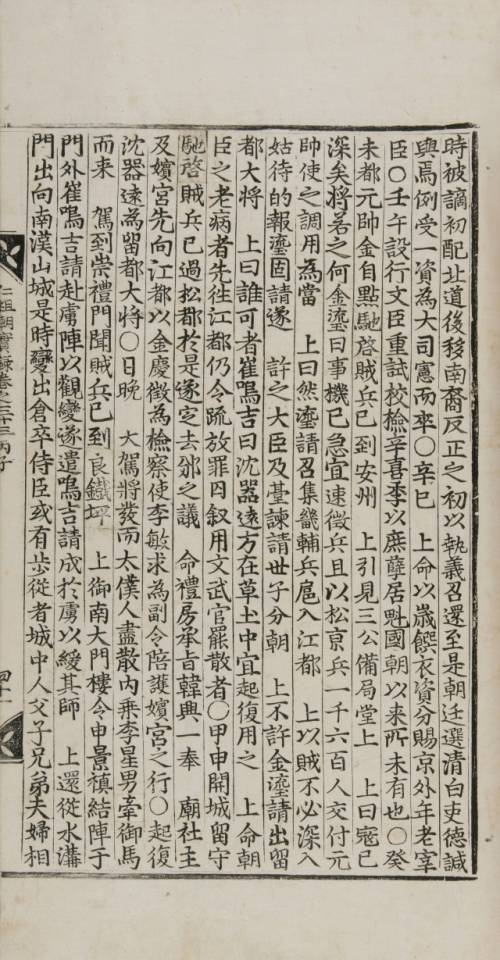 時被謫初配北道後移南裔反正之初以執義召還至是朝廷選清白吏德諴
與焉例受一資為大司憲而卒○辛巳　上命以歲饌衣資分賜京外年老宰
臣○壬午設行文臣重試校檢辛喜季以庶孽居魁國朝以来所未有也○癸
未都元帥金自點馳啓賊兵已到安州　上引見三公備局堂上　上曰寇已
深矣將若之何金瑬曰事機已急宜速徵兵且以松京兵一千六百人交付元
帥使之調用為當　上曰然瑬請召集畿輔兵扈入江都　上以賊不必深入
姑待的報瑬固請遂　許之大臣及臺諫請世子分朝　上不許金瑬請出留
都大將　上曰誰可者崔鳴吉曰沈器遠方在草土中宜起復用之　上命朝
臣之老病者先徃江都仍令疏放罪囚叙用文武官罷散者○甲申開城留守
馳啓賊兵已過松都於是遂定去邠之議　命禮房承旨韓興一奉　廟社主
及嬪宮先向江都以金慶徵為檢察使李敏求為副令陪護嬪宮之行○起復
沈器遠為留都大將○日晚　大駕將發而太僕人盡散内乗李星男牽御馬
而来　駕到崇禮門聞賊兵已到良鐵坪　上御南大門樓令申景禛結陣于
門外崔鳴吉請赴虜陣以觀變遂遣鳴吉請成於虜以緩其師　上還從水溝
門出向南漢山城是時變出倉卒侍臣或有歩從者城中人父子兄弟夫婦相
仁祖朝實録卷之三十三丙子
四十一